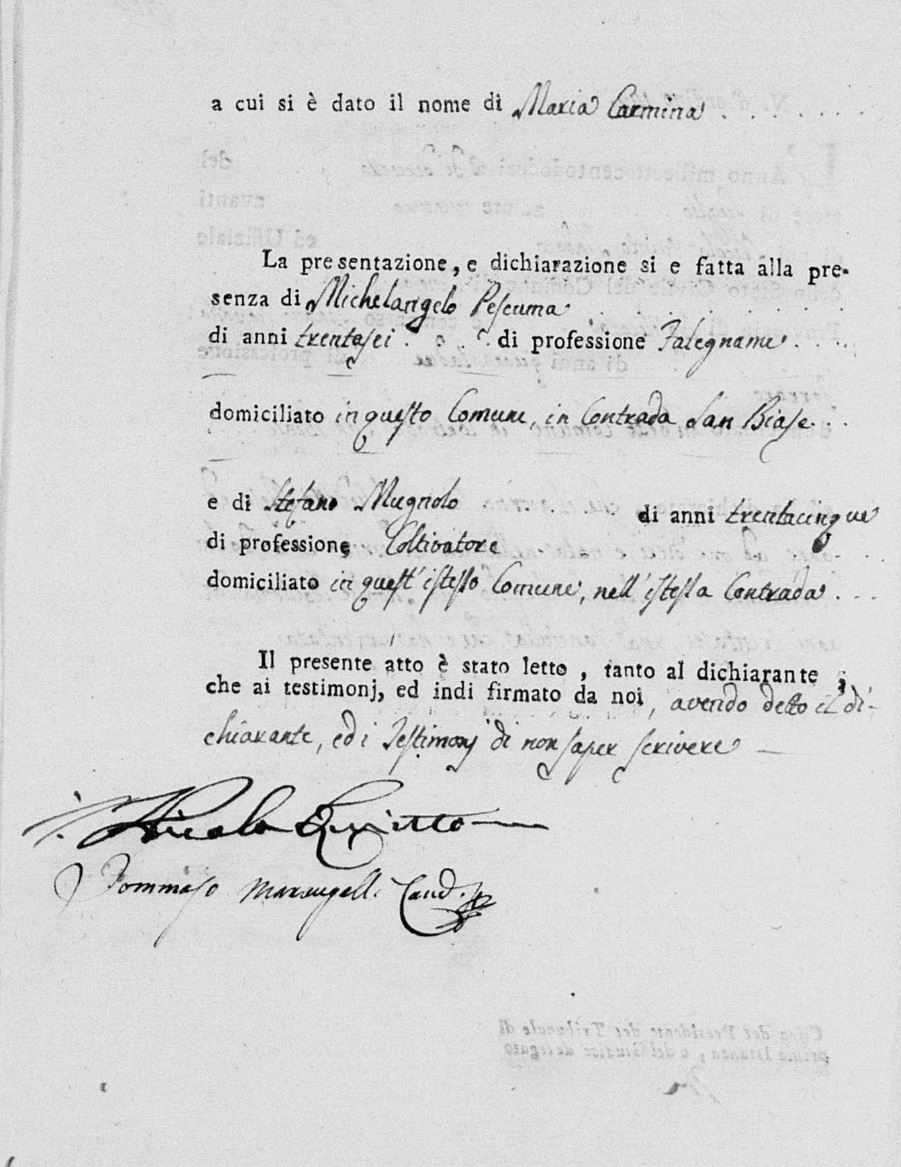 a cui si è dato il nome di Maria Carmina
La presentazione, e dichiarazione si e fatta alla pre-
senza di Michelangelo Pescuma
di anni trentasei di professione Falegname
domiciliato in questo Comune, in Contrada San Biase
e di Stefano Mugnolo di anni trentacinque
di professione Coltivatore
domiciliato in quest'istesso Comune, nell'istessa Contrada
Il presente atto è stato letto, tanto al dichiarante,
che ai testimonj, ed indi firmato da noi, avendo detto il di-
chiarante, ed i Testimonj di non saper scrivere
Nicola
Tommaso
Copia del Presidente del Tribunale di
prima Istanza, o del Giudice delegato